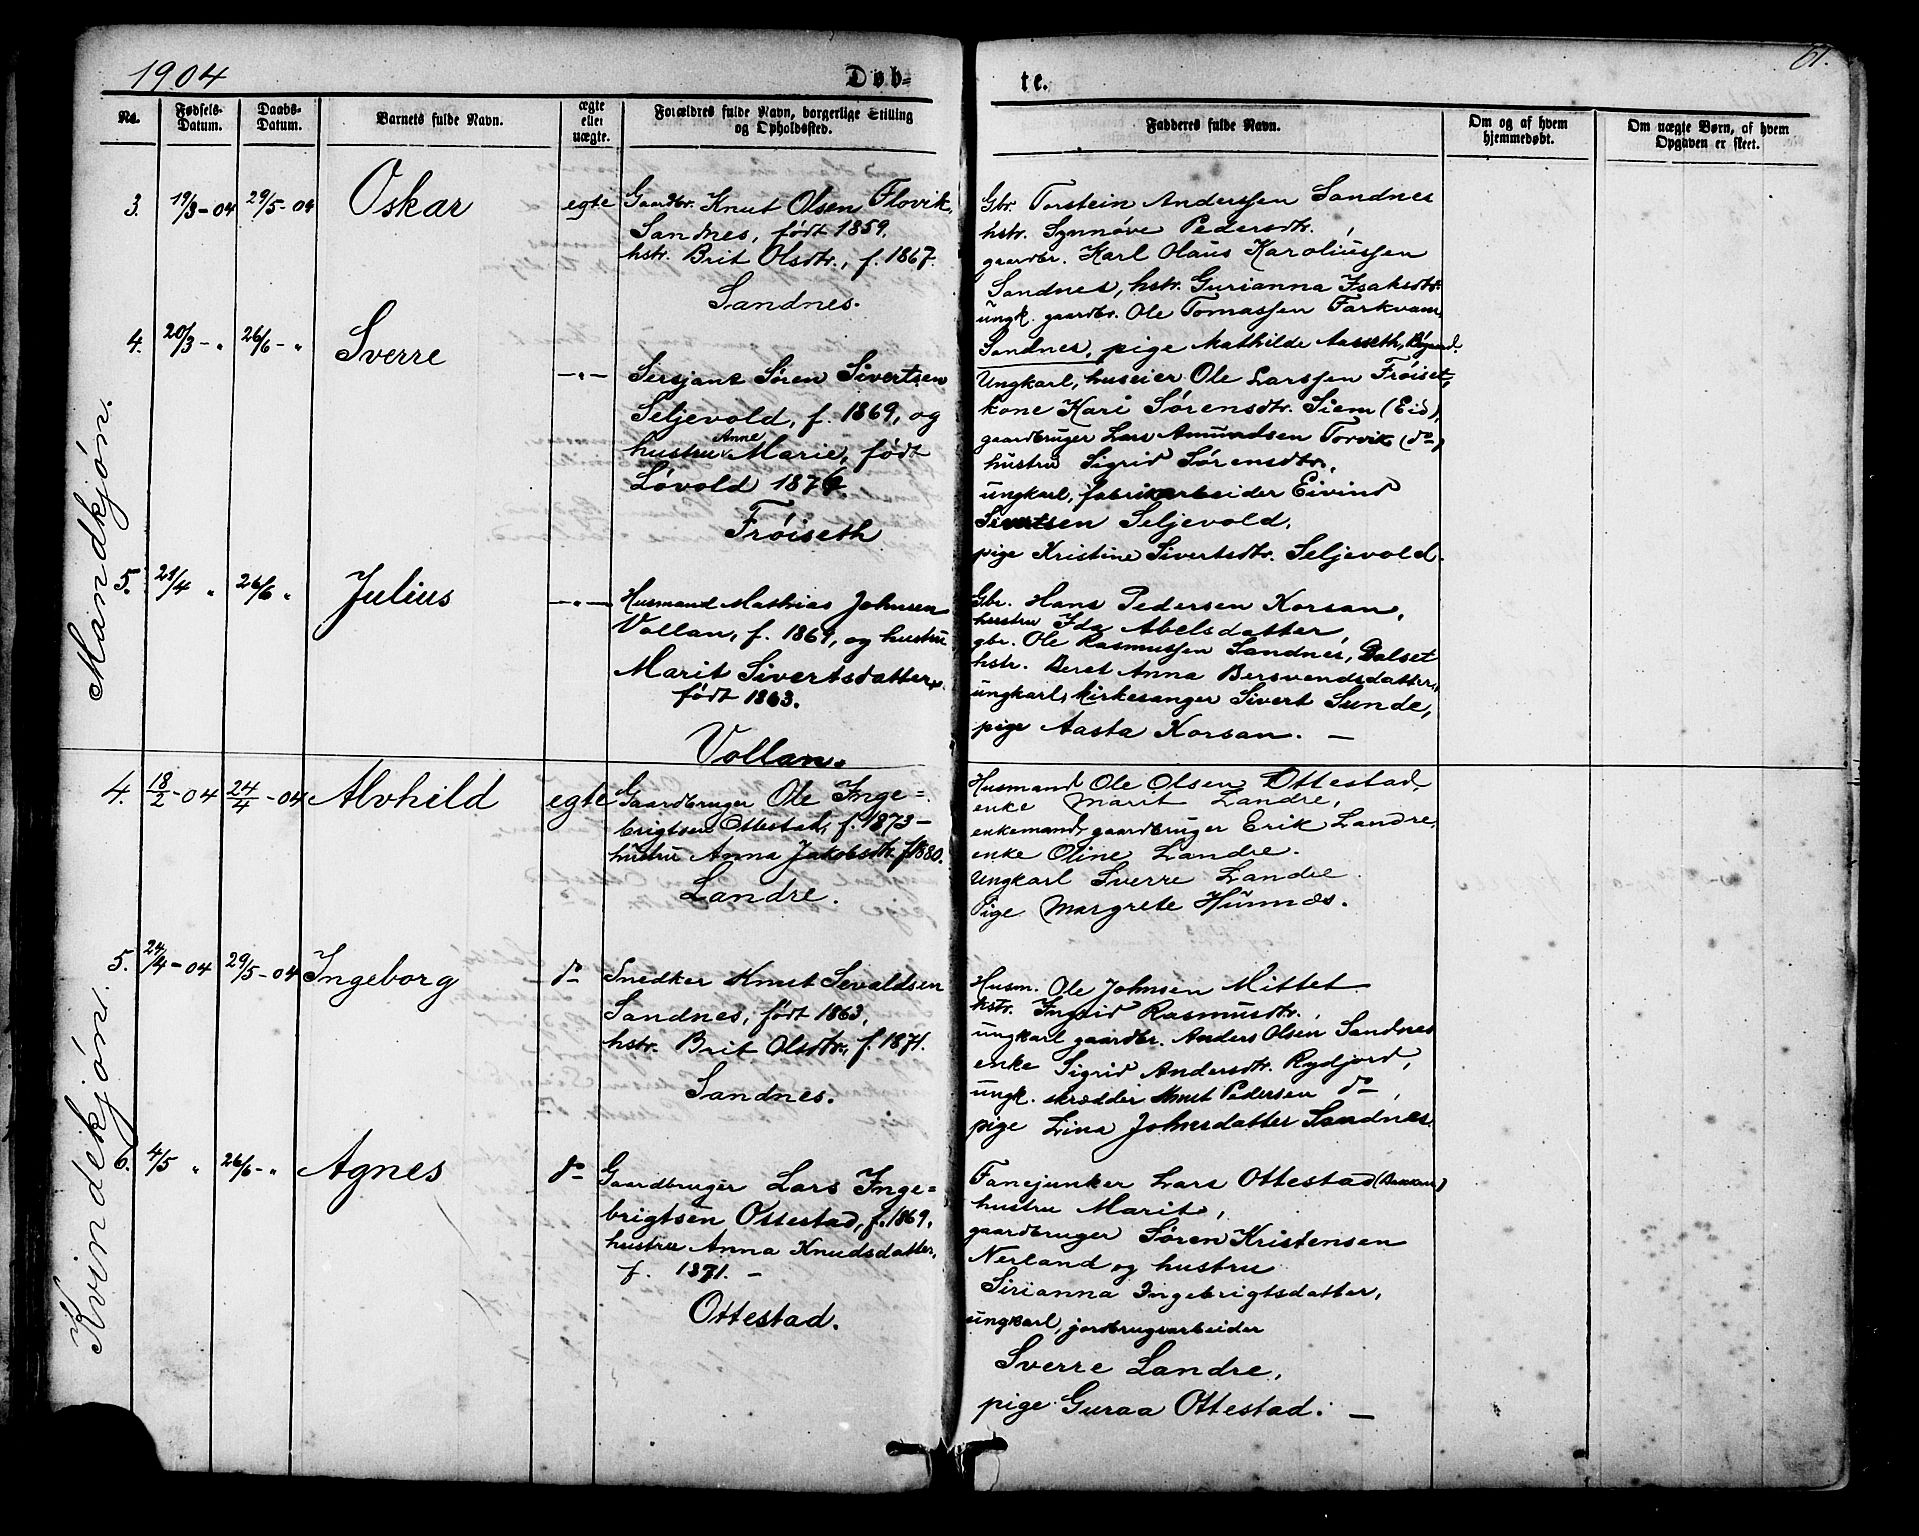 1904
Døb=
te.
61.
No.
Fødsels-Datum.
Daabs-Datum.
Barnets fulde Navn.
ægte eller uægte.
Forældres fulde Navn, borgerlige Stilling og Opholdssted.
Fadderes fulde Navn.
Om og af hvem hjemmedøbt.
Om uægte Børn, af hvem Opgaven er skeet.
Mandkjøn.
3. 19/3-04 29/5-04 Oskar egte
Gaardbr. Knut Olsen Flovik,
Sandnes, født 1859.
hstr. Brit Olsdtr., f. 1867.
Sandnes.
Gbr. Torstein Anderssen Sandnes
hstr. Synnøve Pedersdtr.
gaardbr. Karl Olaus Karoliussen
Sandnes, hstr. Gurianna Isaksdtr.
ungk. gaardbr. Ole Tomassen Farkvam
Sandnes, pige Mathilde Aasseth,
4. 20/3 - " 26/6 - " Sverre - " -
Sersjant Søren Sivertsen
Seljevold, f. 1869, og
hustru Anne Marie, født
Løvold 1876.
Frøiseth
Ungkarl, huseier Ole Larssen Frøiset,
kone Kari Sørensdtr. Siem (Eid),
gaardbruger Lars Amundsen Torvik (do)
hustru Sigrid Sørensdtr.,
ungkarl, fabrikarbeider Eivind
Sivertsen Seljevold,
pige Kristine Sivertsdtr. Seljevold.
5. 21/4 " 26/6 " Julius - " -
Husmand Mathias Johnsen
Vollan, f. 1869, og hustru
Marit Sivertsdatter
født 1863.
Vollan.
Gbr. Hans Pedersen Korsan,
hustru Ida Abelsdatter,
gbr. Ole Rasmussen Sandnes, Dalset
hstr. Beret Anna Bersvendsdatter,
ungkarl, kirkesanger Sivert Sunde,
pige Aasta Korsan. -
Kvindekjøn.
4. 18/2-04 24/4-04 Alvhild egte
Gaardbruger Ole Inge=
brigtsen Ottestad, f. 1873 -
hustru Anna Jakobsdtr. f. 1880.
Landre.
Husmand Ole Olsen Ottestad
enke Marit Landre,
enkemand, gaardbruger Erik Landre,
enke Oline Landre.
Ungkarl Sverre Landre.
Pige Margrete Hunnes.
5. 24/4-04 29/5-04 Ingeborg do
Snedker Knut Sevaldsen
Sandnes, født 1863,
hstr. Brit Olsdtr., f. 1871.
Sandnes.
Husm. Ole Johnsen Mittet
hstr. Ingrid Rasmusdtr.,
ungkarl gaardbr. Anders Olsen Sandnes
enke Sigrid Andersdtr. Rydjord,
ungk. skrædder Knut Pedersen do
pige Lina Johnsdatter Sandnes.
6. 4/5 " 26/6 - " Agnes do
Gaardbruger Lars Inge=
brigtsen Ottestad, f. 1869.
hustru Anna Knudsdatter,
f. 1871. -
Ottestad.
Fanejunker Lars Ottestad (Bakken)
hustru Marit,
gaardbruger Søren Kristensen
Nerland og hustru
Sirianna Ingebrigtsdatter,
ungkarl, jordbrugsarbeider
Sverre Landre,
pige Guraa Ottestad. -